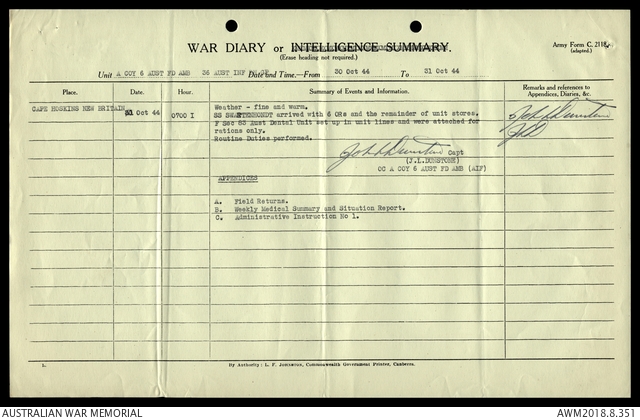 WAR DIARY or INTELLIGENCE SUMMARY.
(Erase heading not required.)
Army Form C. 2118.
(adapted.)
Unit A COY 6 AUST FD AMB 36 AUST INF Date and Time.—From 30 Oct 44 To 31 Oct 44
Place. Date. Hour. Summary of Events and Information. Remarks and references to Appendices, Diaries, &c.
CAPE HOSKINS NEW BRITAIN 31 Oct 44 0700 I Weather - fine and warm.
SS arrived with 6 ORs and the remainder of unit stores.
F Sec 63 Aust Dental Unit set up in unit lines and were attached for
rations only.
Routine Duties performed.
Capt
(J.L.DUNSTONE)
OC A COY 6 AUST FD AMB (AIF)
APPENDICES
A. Field Returns.
B. Weekly Medical Summary and Situation Report.
C. Administrative Instruction No 1.
By Authority: L. F. Johnston, Commonwealth Government Printer, Canberra.
AUSTRALIAN WAR MEMORIAL AWM2018.8.351